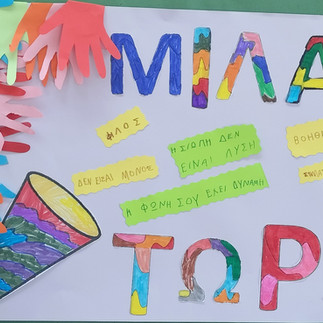 ΜΙΛΑ
ΦΙΛΟΣ
Η ΣΙΩΠΗ ΔΕΝ
ΕΙΝΑΙ ΛΥΣΗ
ΒΟΗΘ
ΔΕΝ ΕΙΣΑΙ ΜΟΝΟΣ
Η ΦΩΝΗ ΣΟΥ ΕΧΕΙ ΔΥΝΑΜΗ
ΤΩΡ